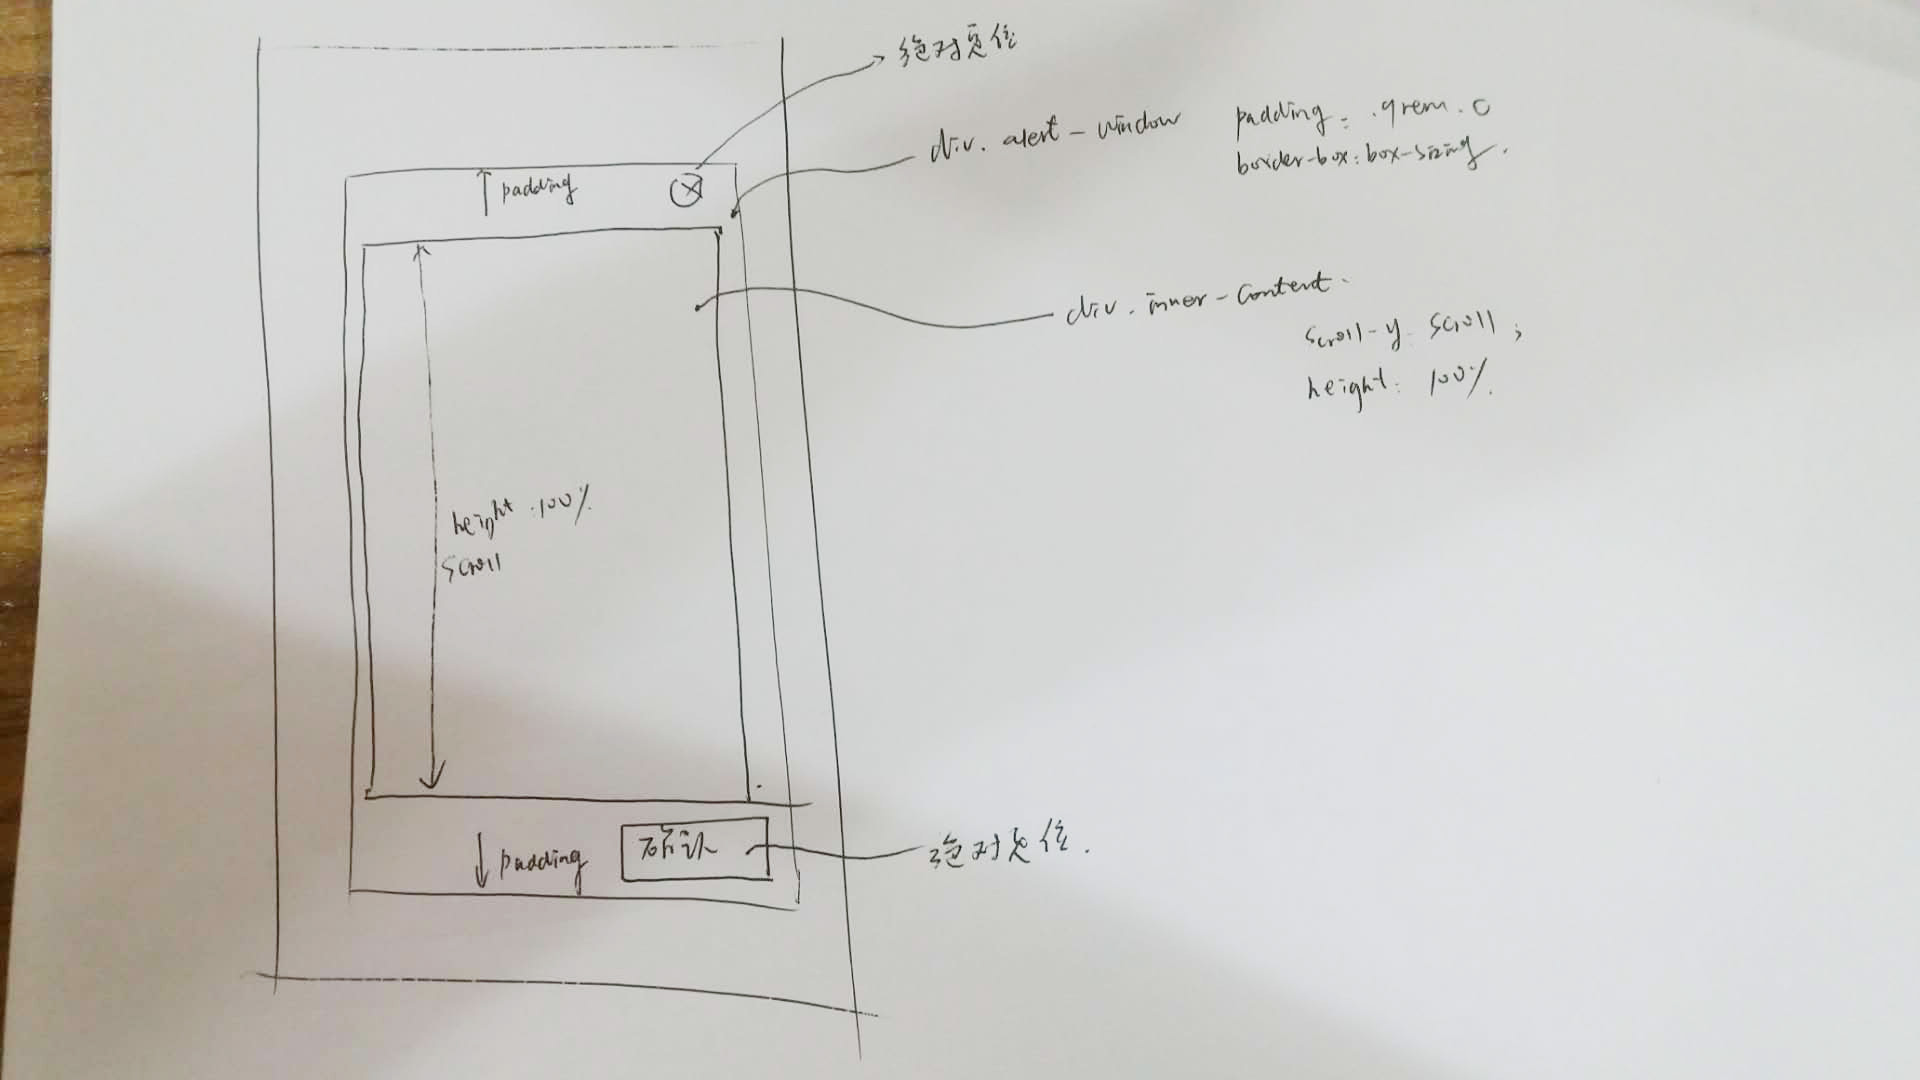 绝对定位
div.alert-window
padding: .9rem. 0
border-box: box-sizing.
padding
div.inner-content.
scroll-y: scroll;
height: 100%.
height: 100%
scroll
确认
padding
绝对定位.